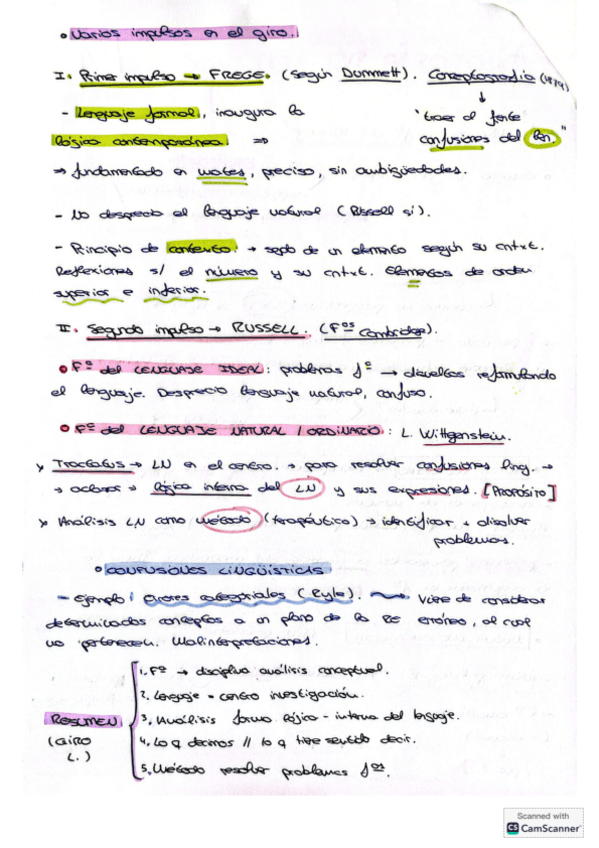 • Varios impulsos en el giro.
I. Primer impulso → FREGE. (Según Dummett). Conceptografía (1879)
↓
- Lenguaje formal, inaugura la "traer al frente
lógica contemporánea. ⇒ confusiones del len."
⇒ fundamentado en mates, preciso, sin ambigüedades.
- No desprecia el lenguaje natural (Rusell sí).
- Principio de contexto. → sgdo de un elemento según su cntxt.
Reflexiones s/ el número y su cntxt. Elementos de orden
superior e inferior.
II. Segundo impulso → RUSSELL. (Fºs Cambridge).
• Fº del LENGUAJE IDEAL: problemas fº → disueltos reformulando
el lenguaje. Desprecio lenguaje natural, confuso.
• Fº del LENGUAJE NATURAL / ORDINARIO: L. Wittgenstein.
> Tractatus → LN en el centro. → para resolver confusiones ling. →
→ aclarar → lógica interna del LN y sus expresiones. [PROPÓSITO]
> Análisis LN como método (terapéutico) → identificar + disolver
problemas.
• CONFUSIONES LINGÜÍSTICAS
- Ejemplo: Errores categoriales (Ryle). Viene de considerar
determinados conceptos a un plano de la re erróneo, al cual
no pertenecen. Malinterpretaciones.
RESUMEN
(GIRO
L.)
1. Fº → disciplina análisis conceptual.
2. Lenguaje = centro investigación.
3. Análisis forma lógica - interna del lenguaje.
4. Lo q decimos // lo q tiene sentido decir.
5. Método resolver problemas fºs.
Scanned with
CS CamScanner